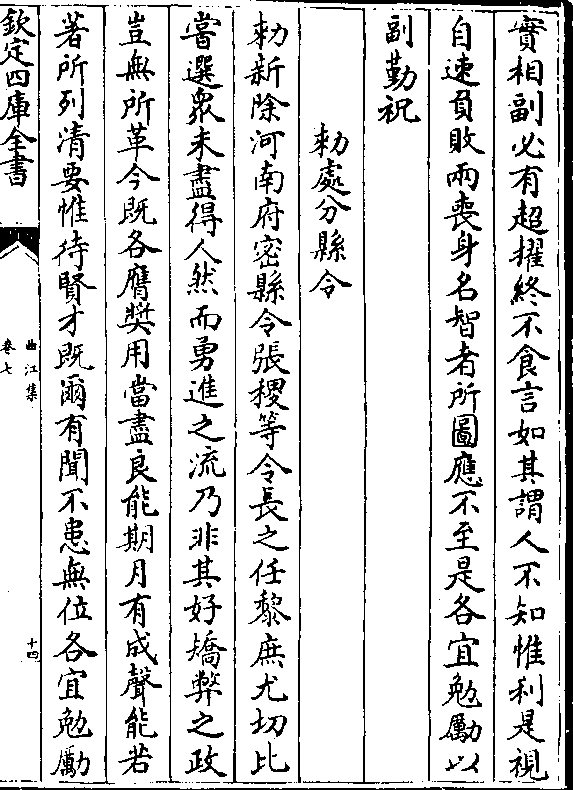 實相副必有超擢終不食言如其謂人不知惟利是視
自速負敗兩喪身名智者所圖應不至是各宜勉勵以
副勤祝
勑處分縣令
勑新除河南府密縣令張稷等令長之任黎庶尤切比
嘗選衆未盡得人然而勇進之流乃非其好矯弊之政
豈無所革今既各膺奬用當盡良能期月有成聲能若
著所列清要惟待賢才既爾有聞不患無位各宜勉勵
欽定四庫全書
曲江集
卷七
十四